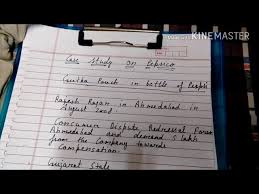 Made with KINEMASTER
Case Study on Pepsico
Gutka Pouch in bottle of Pepsi
Rajesh Rajan in Ahmedabad in
August
Consumer Dispute Redressal Forum
Ahmedabad and demand 5 lakh
from the Company towards
Compensation.
Gujarat State